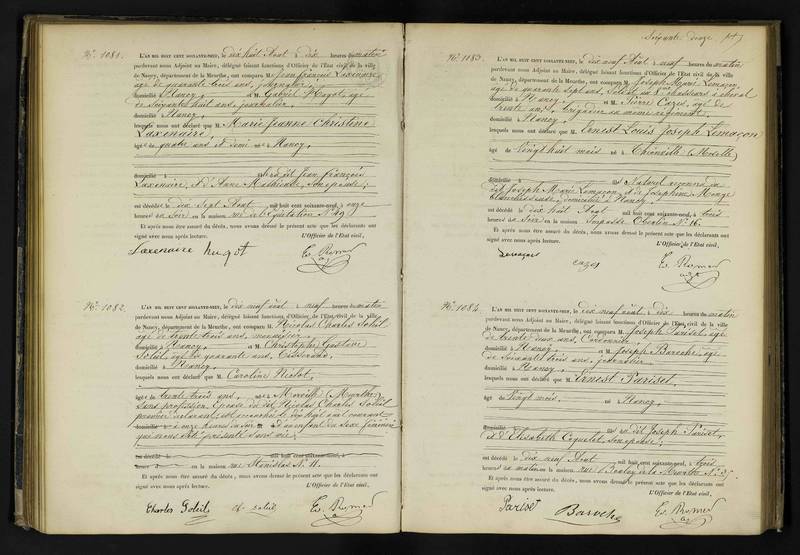 N.º 1081.
L'AN MIL HUIT CENT SOIXANTE-NEUF, le dix huit Aout à dix heures du matin
pardevant nous Adjoint au Maire, délégué faisant fonctions d'Officier de l'Etat civil de la ville
de Nancy, département de la Meurthe, ont comparu M. Jean François Laxenaire
âgé de quarante trois ans, journalier,
domicilié à Nancy, et M. Gabriel Hugot, âgé
de soixante huit ans, journalier,
domicilié à Nancy,
lesquels nous ont déclaré que M. Marie Jeanne Christine
Laxenaire,
âgé e de quatre ans et demi né e à Nancy,
domicilié à dit Jean François
Laxenaire, et d'Anne son épouse;
est décédé e le dix sept Aout mil huit cent soixante-neuf, à onze
heures du soir en la maison rue de l'Equitation N.º 49
Et après nous être assuré du décès, nous avons dressé le présent acte que les déclarants ont
signé avec nous après lecture.
L'Officier de l'Etat civil,
Laxenaire hugot
N.º 1082.
L'AN MIL HUIT CENT SOIXANTE-NEUF, le dix neuf Aout à neuf heures du matin
pardevant nous Adjoint au Maire, délégué faisant fonctions d'Officier de l'Etat civil de la ville
de Nancy, département de la Meurthe, ont comparu M. Nicolas Charles Soleil
âgé de trente trois ans, menuisier,
domicilié à Nancy, et M. Christophe Gustave
Soleil, âgé de quarante ans, Tisserand,
domicilié à Nancy,
lesquels nous ont déclaré que M. Caroline
âgé e de trente trois ans, née à (Meurthe)
sans profession, épouse du dit Nicolas Charles Soleil
premier déclarant, est accouchée le dix huit aout courant
à onze heures du soir d'un enfant du sexe féminin
qui nous a été présenté sans vie;
est décédé mil huit cent soixante-neuf, à
heures en la maison rue Stanislas N.º 11.
Et après nous être assuré du décès, nous avons dressé le présent acte que les déclarants ont
signé avec nous après lecture.
L'Officier de l'Etat civil,
Charles Soleil soleil
Soixante douze
N.º 1083.
L'AN MIL HUIT CENT SOIXANTE-NEUF, le dix neuf Aout à neuf heures du matin
pardevant nous Adjoint au Maire, délégué faisant fonctions d'Officier de l'Etat civil de la ville
de Nancy, département de la Meurthe, ont comparu M. Joseph Marie Lemaçon,
âgé de quarante sept ans, soldat au chasseurs à cheval
domicilié à Nancy, et M. Pierre Cazes, âgé de
trente ans, brigadier au même régiment,
domicilié à Nancy,
lesquels nous ont déclaré que M. Ernest Louis Joseph Lemaçon
âgé de vingt huit mois né à Thionville (Moselle)
domicilié à fils Naturel reconnu du
dit Joseph Marie Lemaçon, et de Joséphine
blanchisseuse, domiciliée à Nancy;
est décédé le dix huit Aout mil huit cent soixante-neuf, à trois
heures du soir en la maison Impasse N.º 16.
Et après nous être assuré du décès, nous avons dressé le présent acte que les déclarants ont
signé avec nous après lecture.
L'Officier de l'Etat civil,
Lemaçon
cazes
N.º 1084.
L'AN MIL HUIT CENT SOIXANTE-NEUF, le dix neuf Aout à dix heures du matin
pardevant nous Adjoint au Maire, délégué faisant fonctions d'Officier de l'Etat civil de la ville
de Nancy, département de la Meurthe, ont comparu M. Joseph Pariset, âgé
de trente deux ans, Cordonnier,
domicilié à Nancy, et M. Joseph Baroche, âgé
de soixante trois ans, journalier,
domicilié à Nancy,
lesquels nous ont déclaré que M. Ernest Pariset,
âgé de vingt mois, né à Nancy,
domicilié à dit Joseph Pariset,
et d'Elisabeth Coquelet, son épouse;
est décédé le dix neuf Aout mil huit cent soixante-neuf, à trois
heures du matin en la maison rue
Et après nous être assuré du décès, nous avons dressé le présent acte que les déclarants ont
signé avec nous après lecture.
L'Officier de l'Etat civil,
Pariset